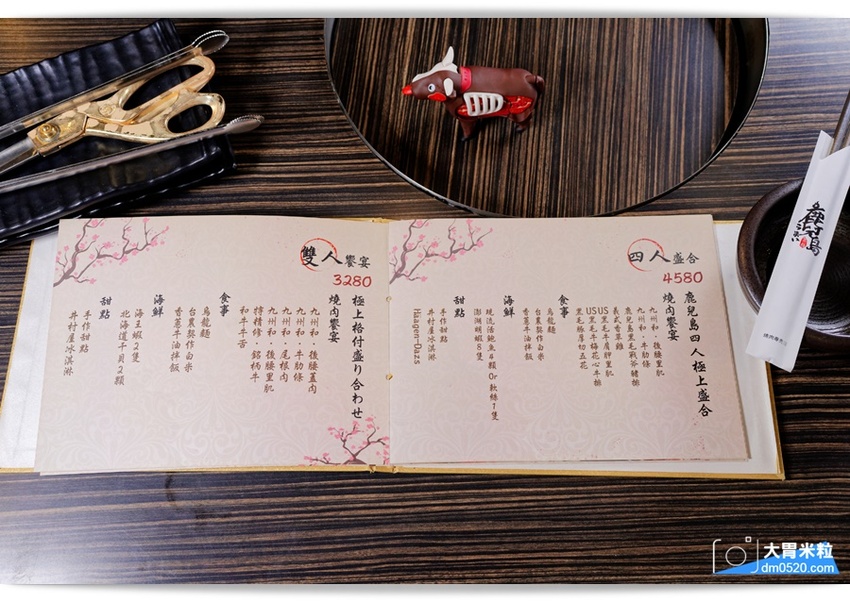 四人盛合
4580
鹿兒島四人極上盛合
燒肉饗宴
九州和・後腰里肌
九州和・牛肋條
鹿兒島黑毛戰斧豬排
義式香草雞
US黑毛牛肩胛里肌
US黑毛牛梅花心牛排
黑毛豚厚切五花
食事
烏龍麵
台農契作白米
香蔥牛油拌飯
海鮮
現流活鮑魚4顆Or軟絲1隻
澎湖明蝦8隻
甜點
手作甜點
井村屋冰淇淋
Häagen-Dazs
雙人饗宴
3280
極上格付盛り合わせ
燒肉饗宴
九州和・後腰蓋肉
九州和・牛肋條
九州和・尾根肉
九州和・後腰里肌
特精修・銘柄牛
和牛牛舌
食事
烏龍麵
台農契作白米
香蔥牛油拌飯
海鮮
海王蝦2隻
北海道干貝2顆
甜點
手作甜點
井村屋冰淇淋
鹿兒島
大胃米粒
dm0520.com